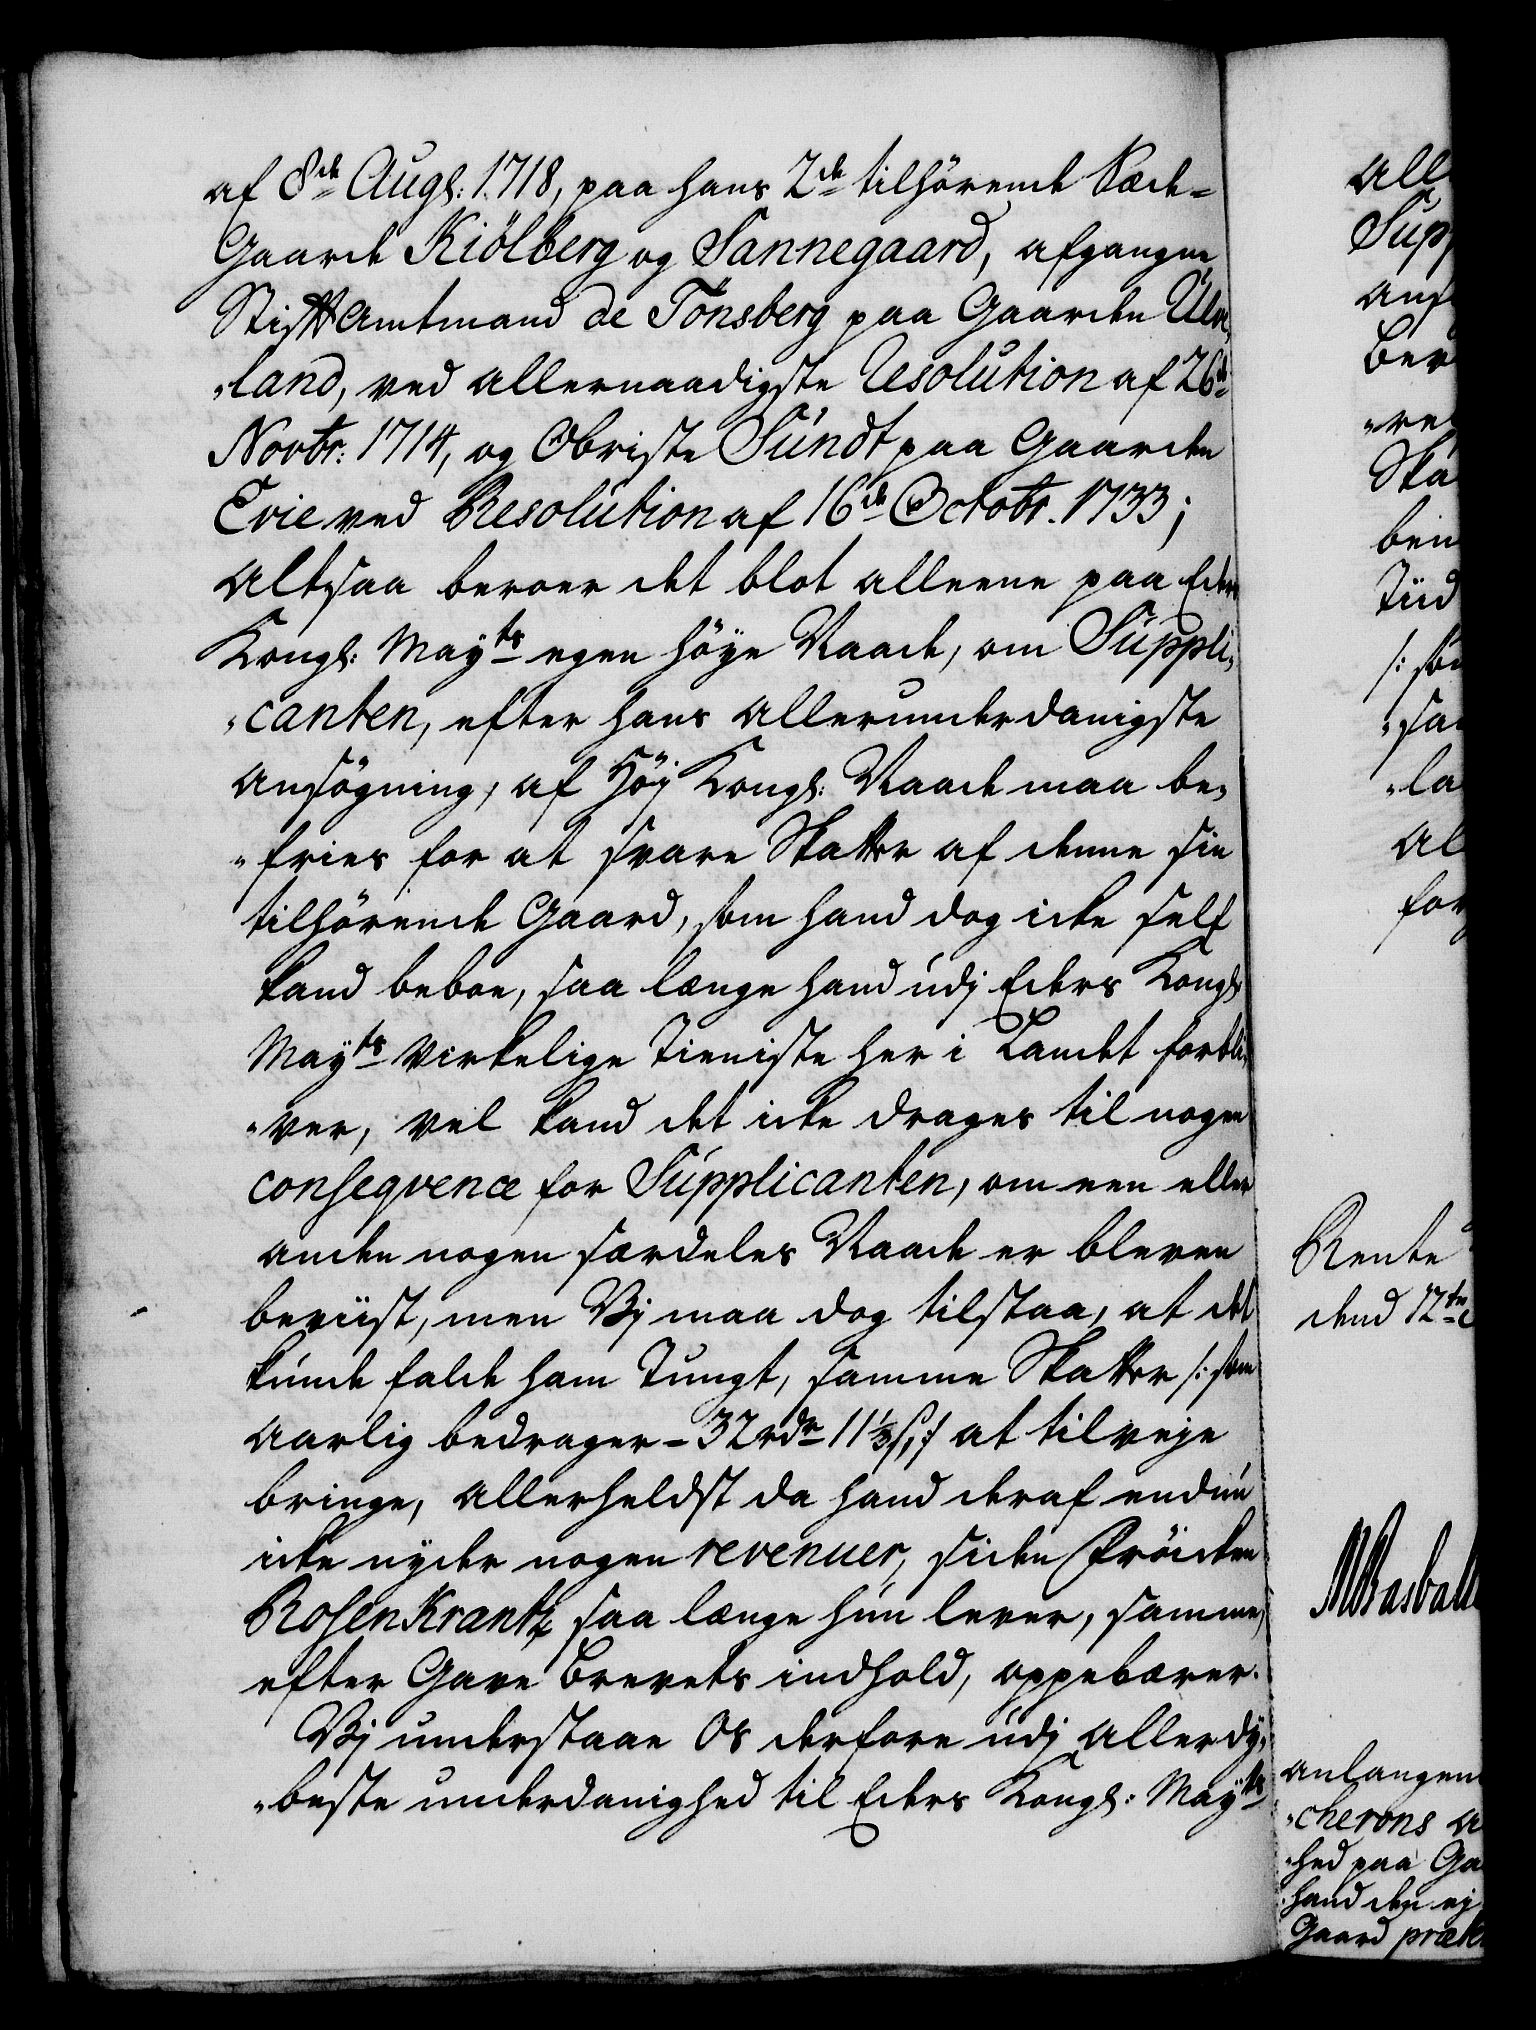 af 8de Augs: 1718, paa hans 2de tilhørende Sæde-
Gaarde Kiölberg og Sannegaard, afgangne
Stift Amtmand de Tonsberg paa Gaarden Ulve,
„land, ved allernaadigste Resolution af 26de
Novbr: 1714, og Obriste Sundt paa Gaarden
Evie ved Resolution af 16de Octobr. 1733;
Altsaa beroer det blot alleene paa Eders
Kongl: Mayts egen høye Naade, om Suppli,
„canten, efter hans allerunderdanigste
ansøgning, af Høy Kongl: Naade maa be,
„fries for at svare Skatter af denne sin
tilhørende Gaard, som hand dog icke self
kand beboe, saa længe hand udj Eders Kongl:
Mayts virkelige Tieniste her i Landet forbli,
„ver, vel kand det icke drages til nogen
conseqvence for Supplicanten, om een eller
anden nogen særdeles Naade er bleven
beviist, men Vj maa dog tilstaa, at det
kunde falde ham Tungt, samme Skatter /: som
aarlig bedrager - 32 rdr 11⅓ s :/ at tilveje
bringe, allerheldst da hand deraf endnu
icke nyder nogen revenuer, siden Frøicken
Rosenkrantz saa længe hun lever, samme,
efter Gave Brevets indhold, oppebærer.
Vj understaae Os derfore udj allerdy,
„beste underdanighed til Eders Kongl: Mayts
all
Supp
ans
Bev
„re
Ska
ben
Tiid
/: som
„sa
„la
al
for
Rente
dend 12te
anlangen
„cherons a
„hed paa Ga
hand den ej
Gaard præt